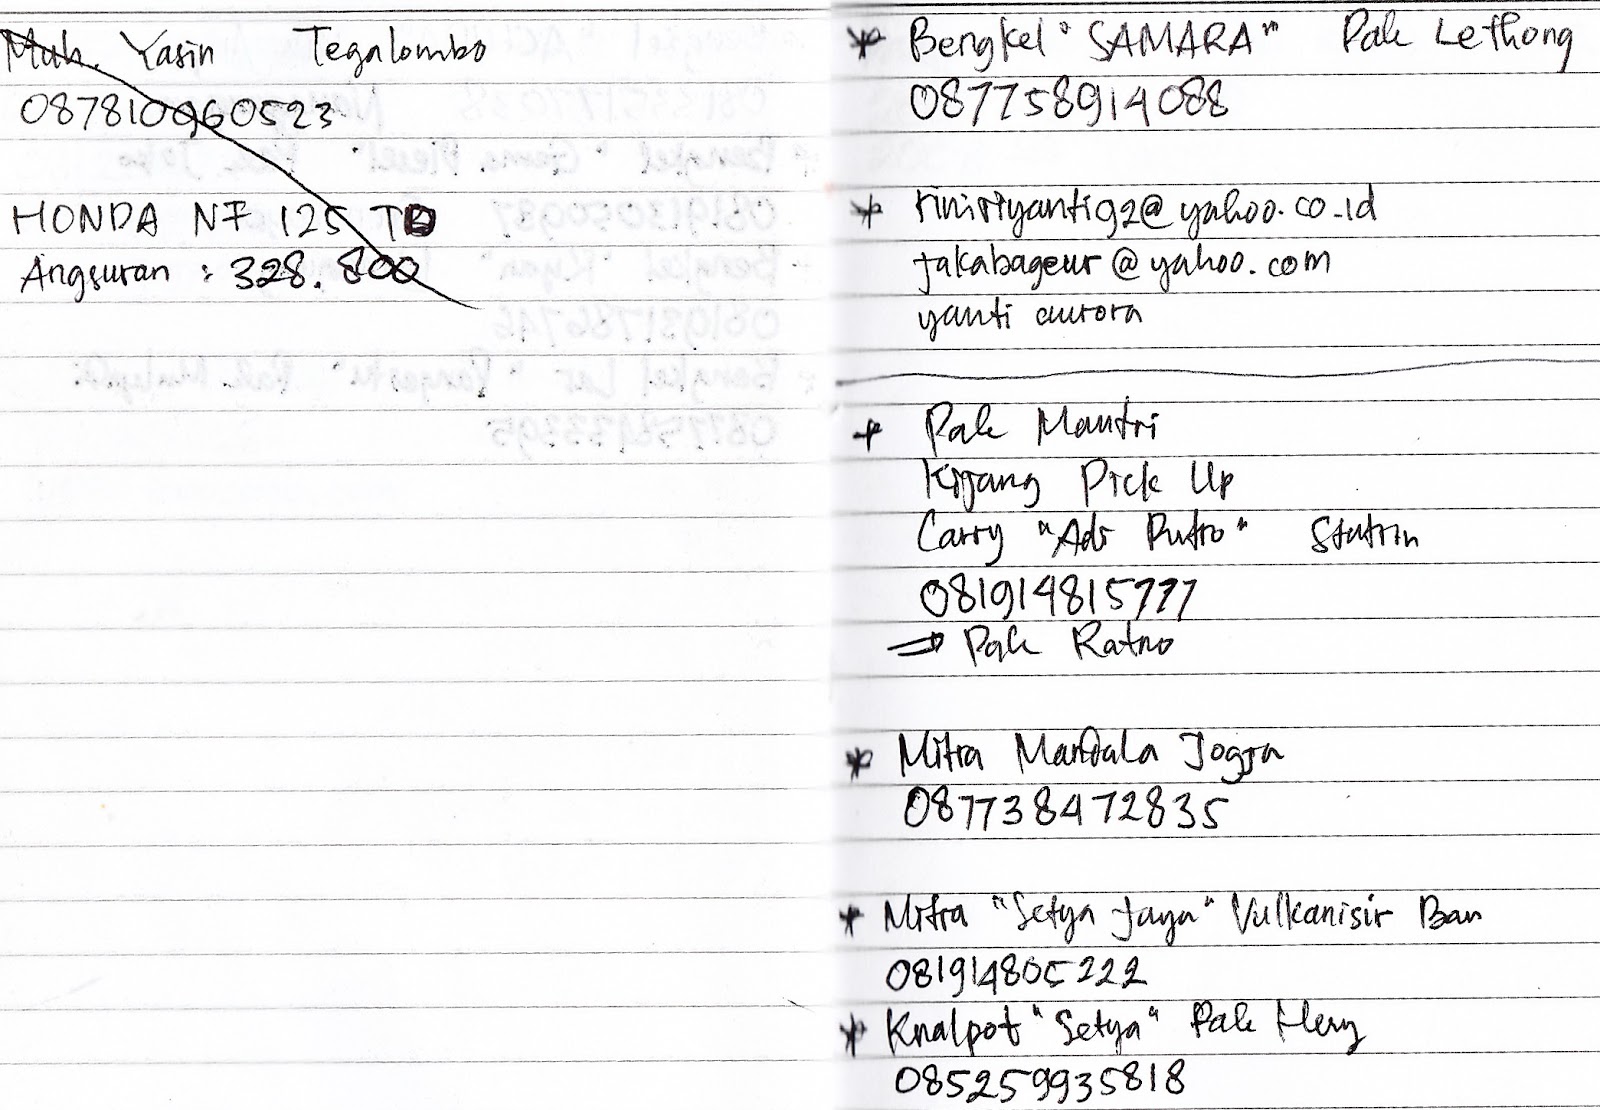 Muh. Yasin Tegalombo
087810960523
HONDA NF 125 TD
Angsuran : 328.800
* Bengkel "SAMARA" Pak Lethong
087758914088
* riniriyanti92@yahoo.co.id
jakabageur@yahoo.com
yanti aurora
* Pak Mantri
Kijang Pick Up
Carry "Adi Putro" Statin
081914815777
⇒ Pak Ratno
* Mitra Mandala Jogja
087738472835
* Mitra "Setya Jaya" Vulkanisir Ban
081914805222
* Knalpot "Setya" Pak Hery
085259935818